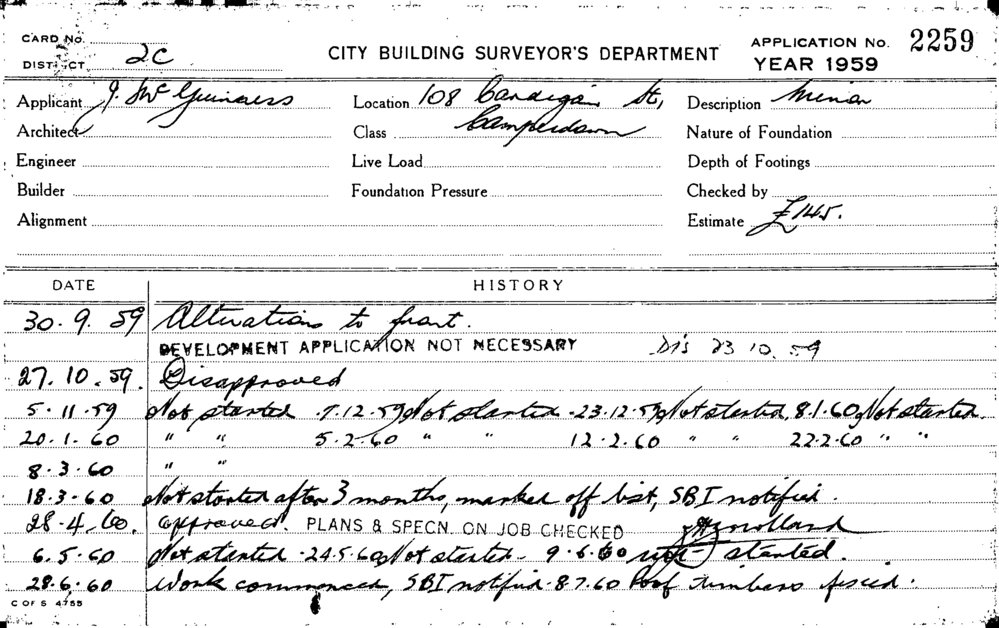 CARD No.
DISTRICT 2C
CITY BUILDING SURVEYOR'S DEPARTMENT
APPLICATION No. 2259
YEAR 1959
Applicant J. McGuiness Location 108 Cardigan St, Description Minor
Architect Class Camperdown Nature of Foundation
Engineer Live Load Depth of Footings
Builder Foundation Pressure Checked by
Alignment Estimate £145.
DATE HISTORY
30.9.59 Alterations to front.
DEVELOPMENT APPLICATION NOT NECESSARY Dis 23 10.59
27.10.59. Disapproved
5.11.59 Not started .7.12.59 Not started .23.12.59 Not started, 8.1.60, Not started.
20.1.60 " " 5.2.60 " " 12.2.60 " " 22.2.60 " "
8.3.60 " "
18.3.60 Not started after 3 months, marked off list, SBI notified.
28.4.60. approved. PLANS & SPECN. ON JOB CHECKED
6.5.60 Not started .24.5.60 Not started - 9.6.60 started.
28.6.60 Work commenced, SBI notified. 8.7.60 Roof timbers fixed.
C OF S 4755